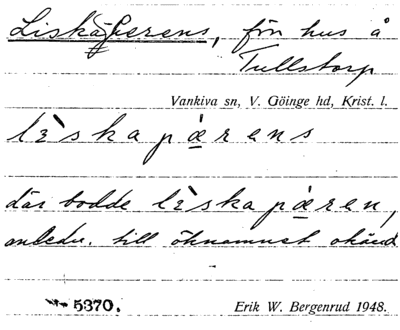 Liskapærens, fön hus å
Tullstorp
Vankiva sn, V. Göinge hd, Krist. l.
lìskapæ̀rens
där bodde lìskapæ̀ren,
anledn. till öknamnet okänd
5370.
Erik W. Bergenrud 1948.